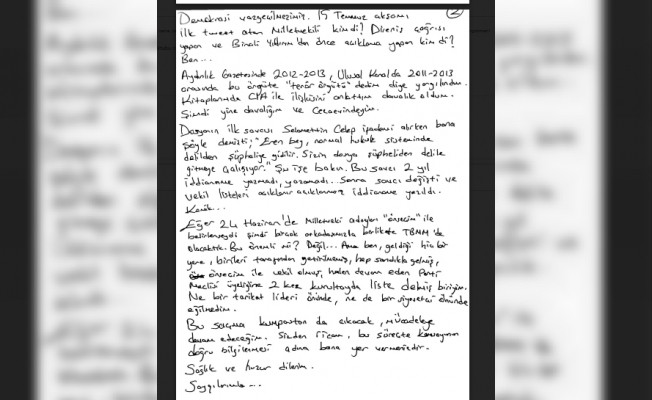 2
Demokrasi vazgeçilmezimiz. 15 Temmuz akşamı
ilk tweet atan Milletvekili kimdi? Direniş çağrısı
yapan ve Binali Yıldırım'dan önce açıklama yapan kimdi?
Ben...
Aydınlık Gazetesinde 2012-2013, Ulusal Kanalda 2011-2013
arasında bu örgüte "terör örgütü" dedim diye yargılandım.
Kitaplarımda CIA ile ilişkisini anlattım davalık oldum.
Şimdi yine davalığım ve Cezaevindeyim.
Dosyanın ilk savcısı Selamettin Celep ifademi alırken bana
şöyle demişti; "Eren bey, normal hukuk sisteminde
delilden şüpheliye gidilir. Sizin dosya şüpheliden delile
gitmeye çalışıyor." Şu işe bakın. Bu savcı 2 yıl
iddianame yazmadı, yazamadı. Sonra savcı değişti ve
vekil listeleri açıklanır açıklanmaz iddianame yazıldı.
Komik...
Eğer 24 Haziran'de Milletvekili adayları "önseçim" ile
belirlenseydi şimdi birçok arkadaşımızla birlikte TBMM'de
olacaktık. Bu önemli mi? Değil... Ama ben, geldiği hiç bir
yere, birileri tarafından getirilmemiş, hep sandıkla gelmiş,
önseçim ile vekil olmuş, halen devam eden Parti
Meclisi üyeliğine 2 kez kurultayda liste delmiş biriyim.
Ne bir tarikat lideri önünde, ne de bir siyasetçi önünde
eğilmedim.
Bu saçma kumpastan da çıkacak, mücadeleye
devam edeceğim. Sizden ricam, bu süreçte kamuoyunun
doğru bilgilenmesi adına bana yer vermenizdir.
Sağlık ve huzur dilerim.
Saygılarımla...